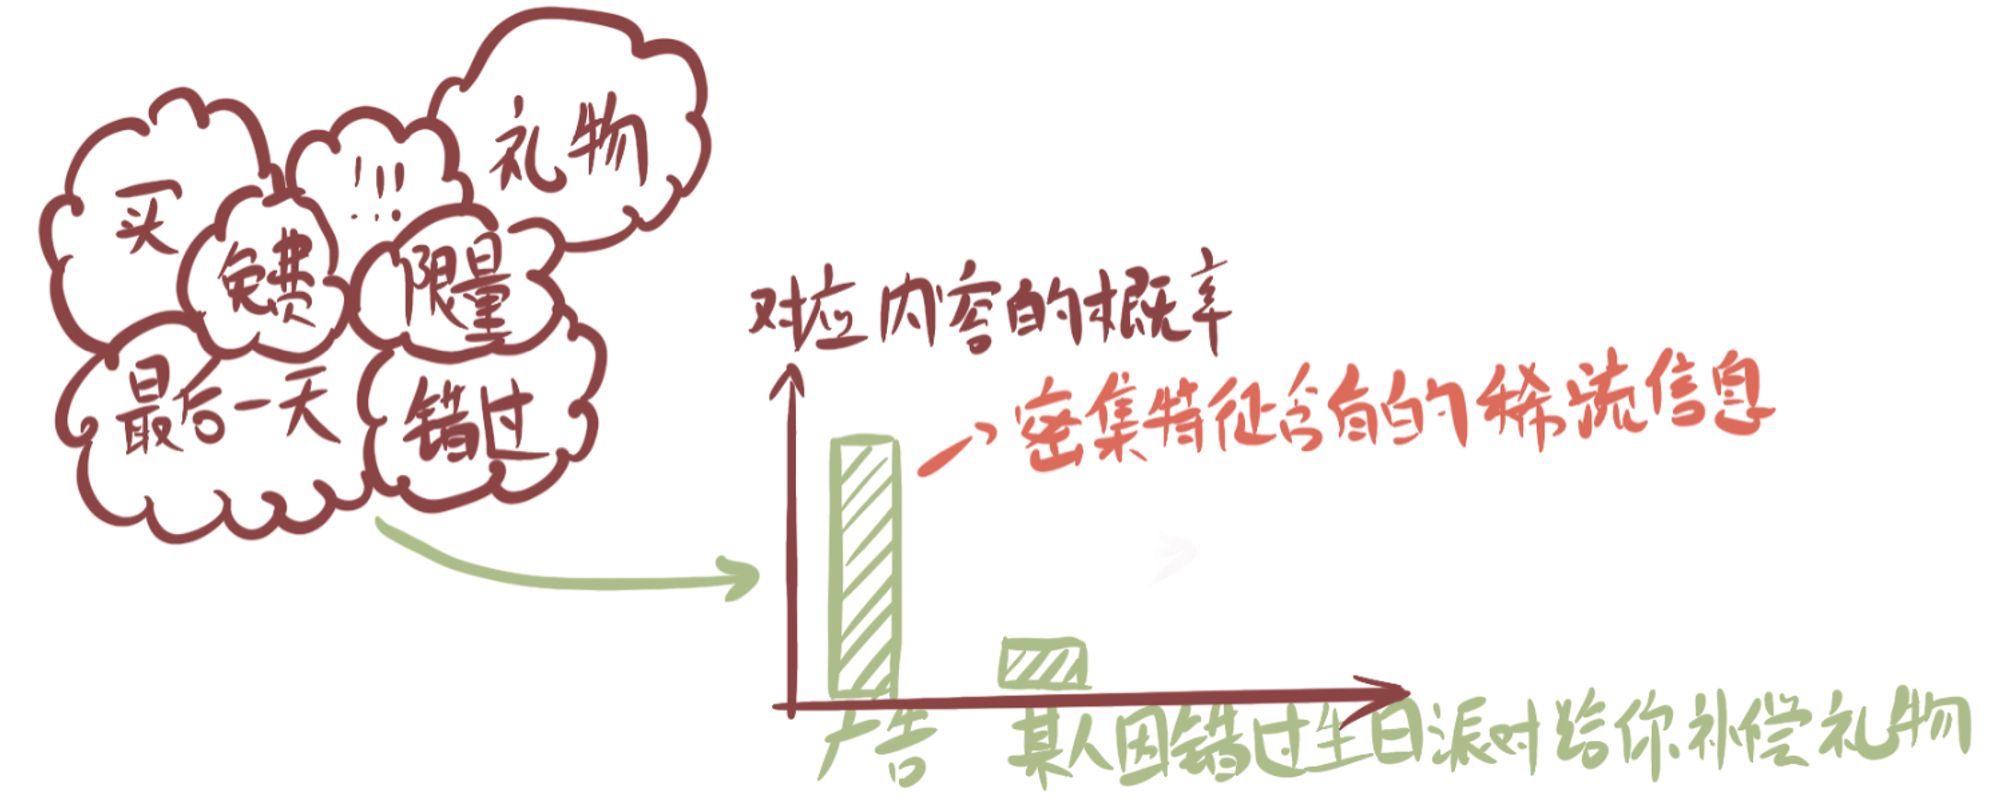 礼物
!!!
买
免费
限量
最后一天
错过
对应内容的概率
密集特征含有的稀疏信息
广告
某人因错过生日派对给你补偿礼物